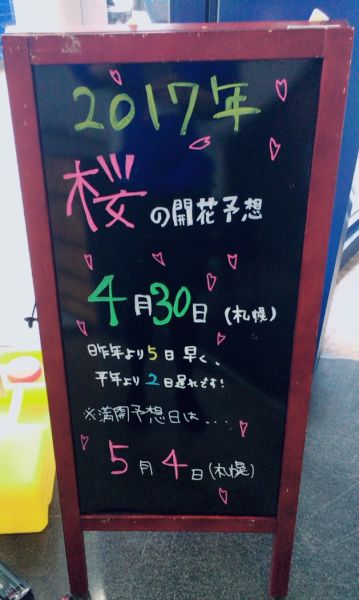 2017年
桜の開花予想
4月30日(札幌)
昨年より5日早く、
平年より2日遅れです!
※満開予想日は、...
5月4日(札幌)